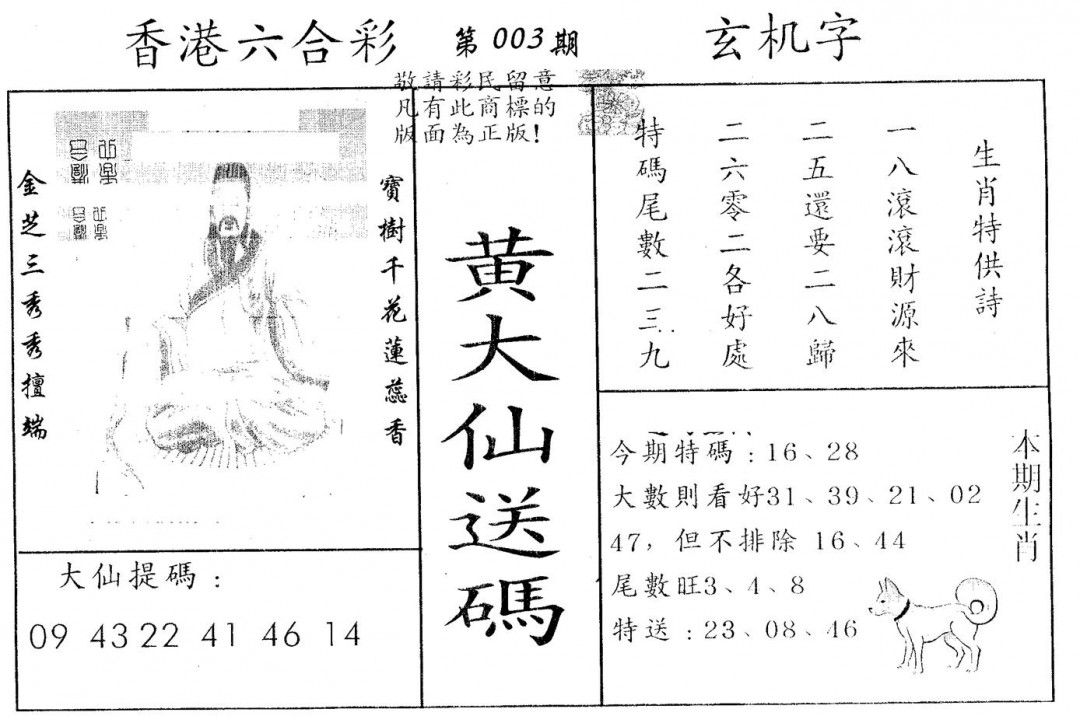 香港六合彩 第003期 玄机字
敬請彩民留意
凡有此商標的
版面為正版！
寶樹千花蓮蕊香
金芝三秀秀擅端
黄大仙送碼
生肖特供詩
一八滾滾財源來
二五還要二八歸
二六零二各好處
特碼尾數二三九
大仙提碼：
09 43 22 41 46 14
本期生肖
今期特碼：16、28
大數則看好31、39、21、02
47，但不排除 16、44
尾數旺3、4、8
特送：23、08、46